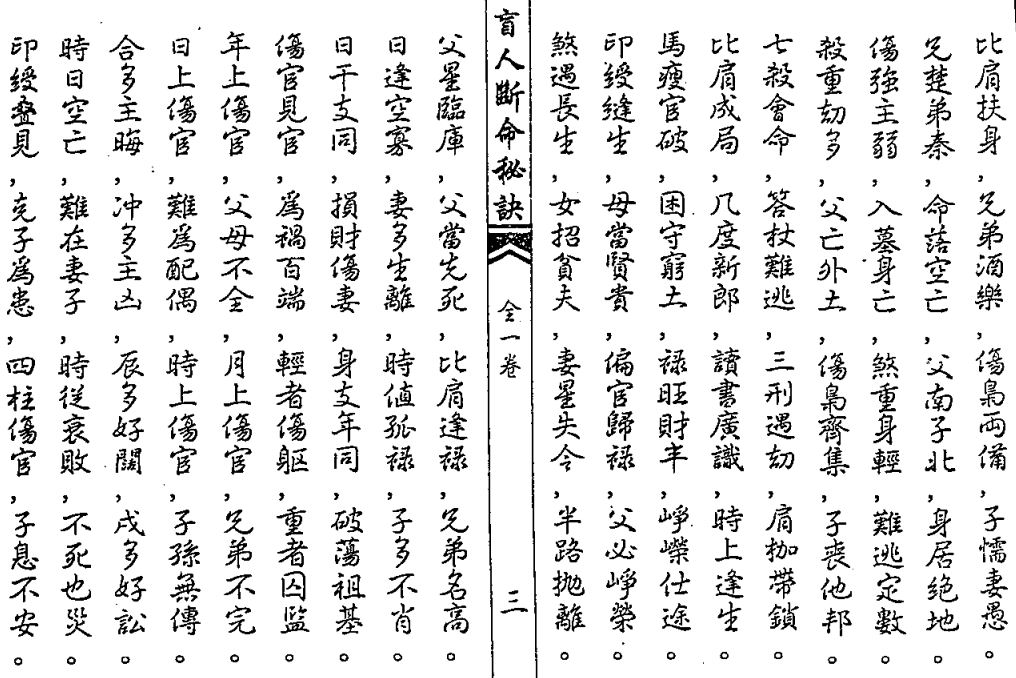 比肩扶身,兄弟酒樂,傷梟兩備,子懦妻愚。
兄楚弟秦,命落空亡,父南子北,身居絕地。
傷強主弱,入墓身亡,煞重身輕,難逃定數。
殺重劫多,父亡外土,傷梟齊集,子喪他邦。
七殺會命,答杖難逃,三刑遇劫,肩枷帶鎖。
比肩成局,几度新郎,讀書廣識,時上逢生。
馬瘦官破,困守窮土,祿旺財丰,崢嶸仕途。
印綬縫生,母當賢貴,偏官歸祿,父必崢榮。
煞遇長生,女招貧夫,妻星失令,半路拋離。
盲人斷命秘訣
全一卷
三
父星臨庫,父當先死,比肩逢祿,兄弟名高。
日逢空寡,妻多生離,時值孤祿,子多不肖。
日干支同,損財傷妻,身支年同,破蕩祖基。
傷官見官,為禍百端,輕者傷軀,重者囚監。
年上傷官,父母不全,月上傷官,兄弟不完。
日上傷官,難為配偶,時上傷官,子孫無傳。
合多主晦,冲多主凶,辰多好鬪,戌多好訟。
時日空亡,難在妻子,時從衰敗,不死也災。
印綬疊見,克子為患,四柱傷官,子息不安。